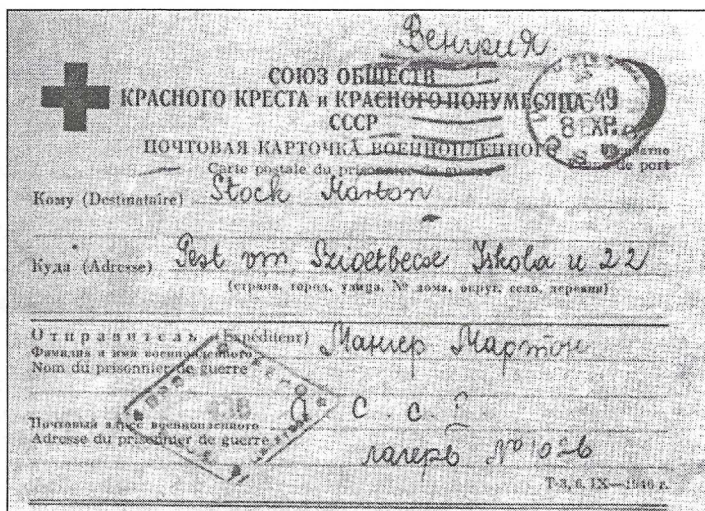 Венгрия
СОЮЗ ОБЩЕСТВ
КРАСНОГО КРЕСТА и КРАСНОГО ПОЛУМЕСЯЦА
СССР
49
8
ПОЧТОВАЯ КАРТОЧКА ВОЕННОПЛЕННОГО
Carte postale du prisonnier de guerre de port
Кому (Destinataire) Stock Márton
Куда (Adresse) Pest vm, Szigetbecse Iskola u 22
(страна, город, улица, № дома, округ, село, деревня)
Отправитель (Expéditeur) Мартон
Фамилия и имя военнопленного
Nom du prisonnier de guerre
Почтовый адрес военнопленного
Adresse du prisonnier de guerre
лагерь № 102б
Т-3, 6. IX—1946 г.